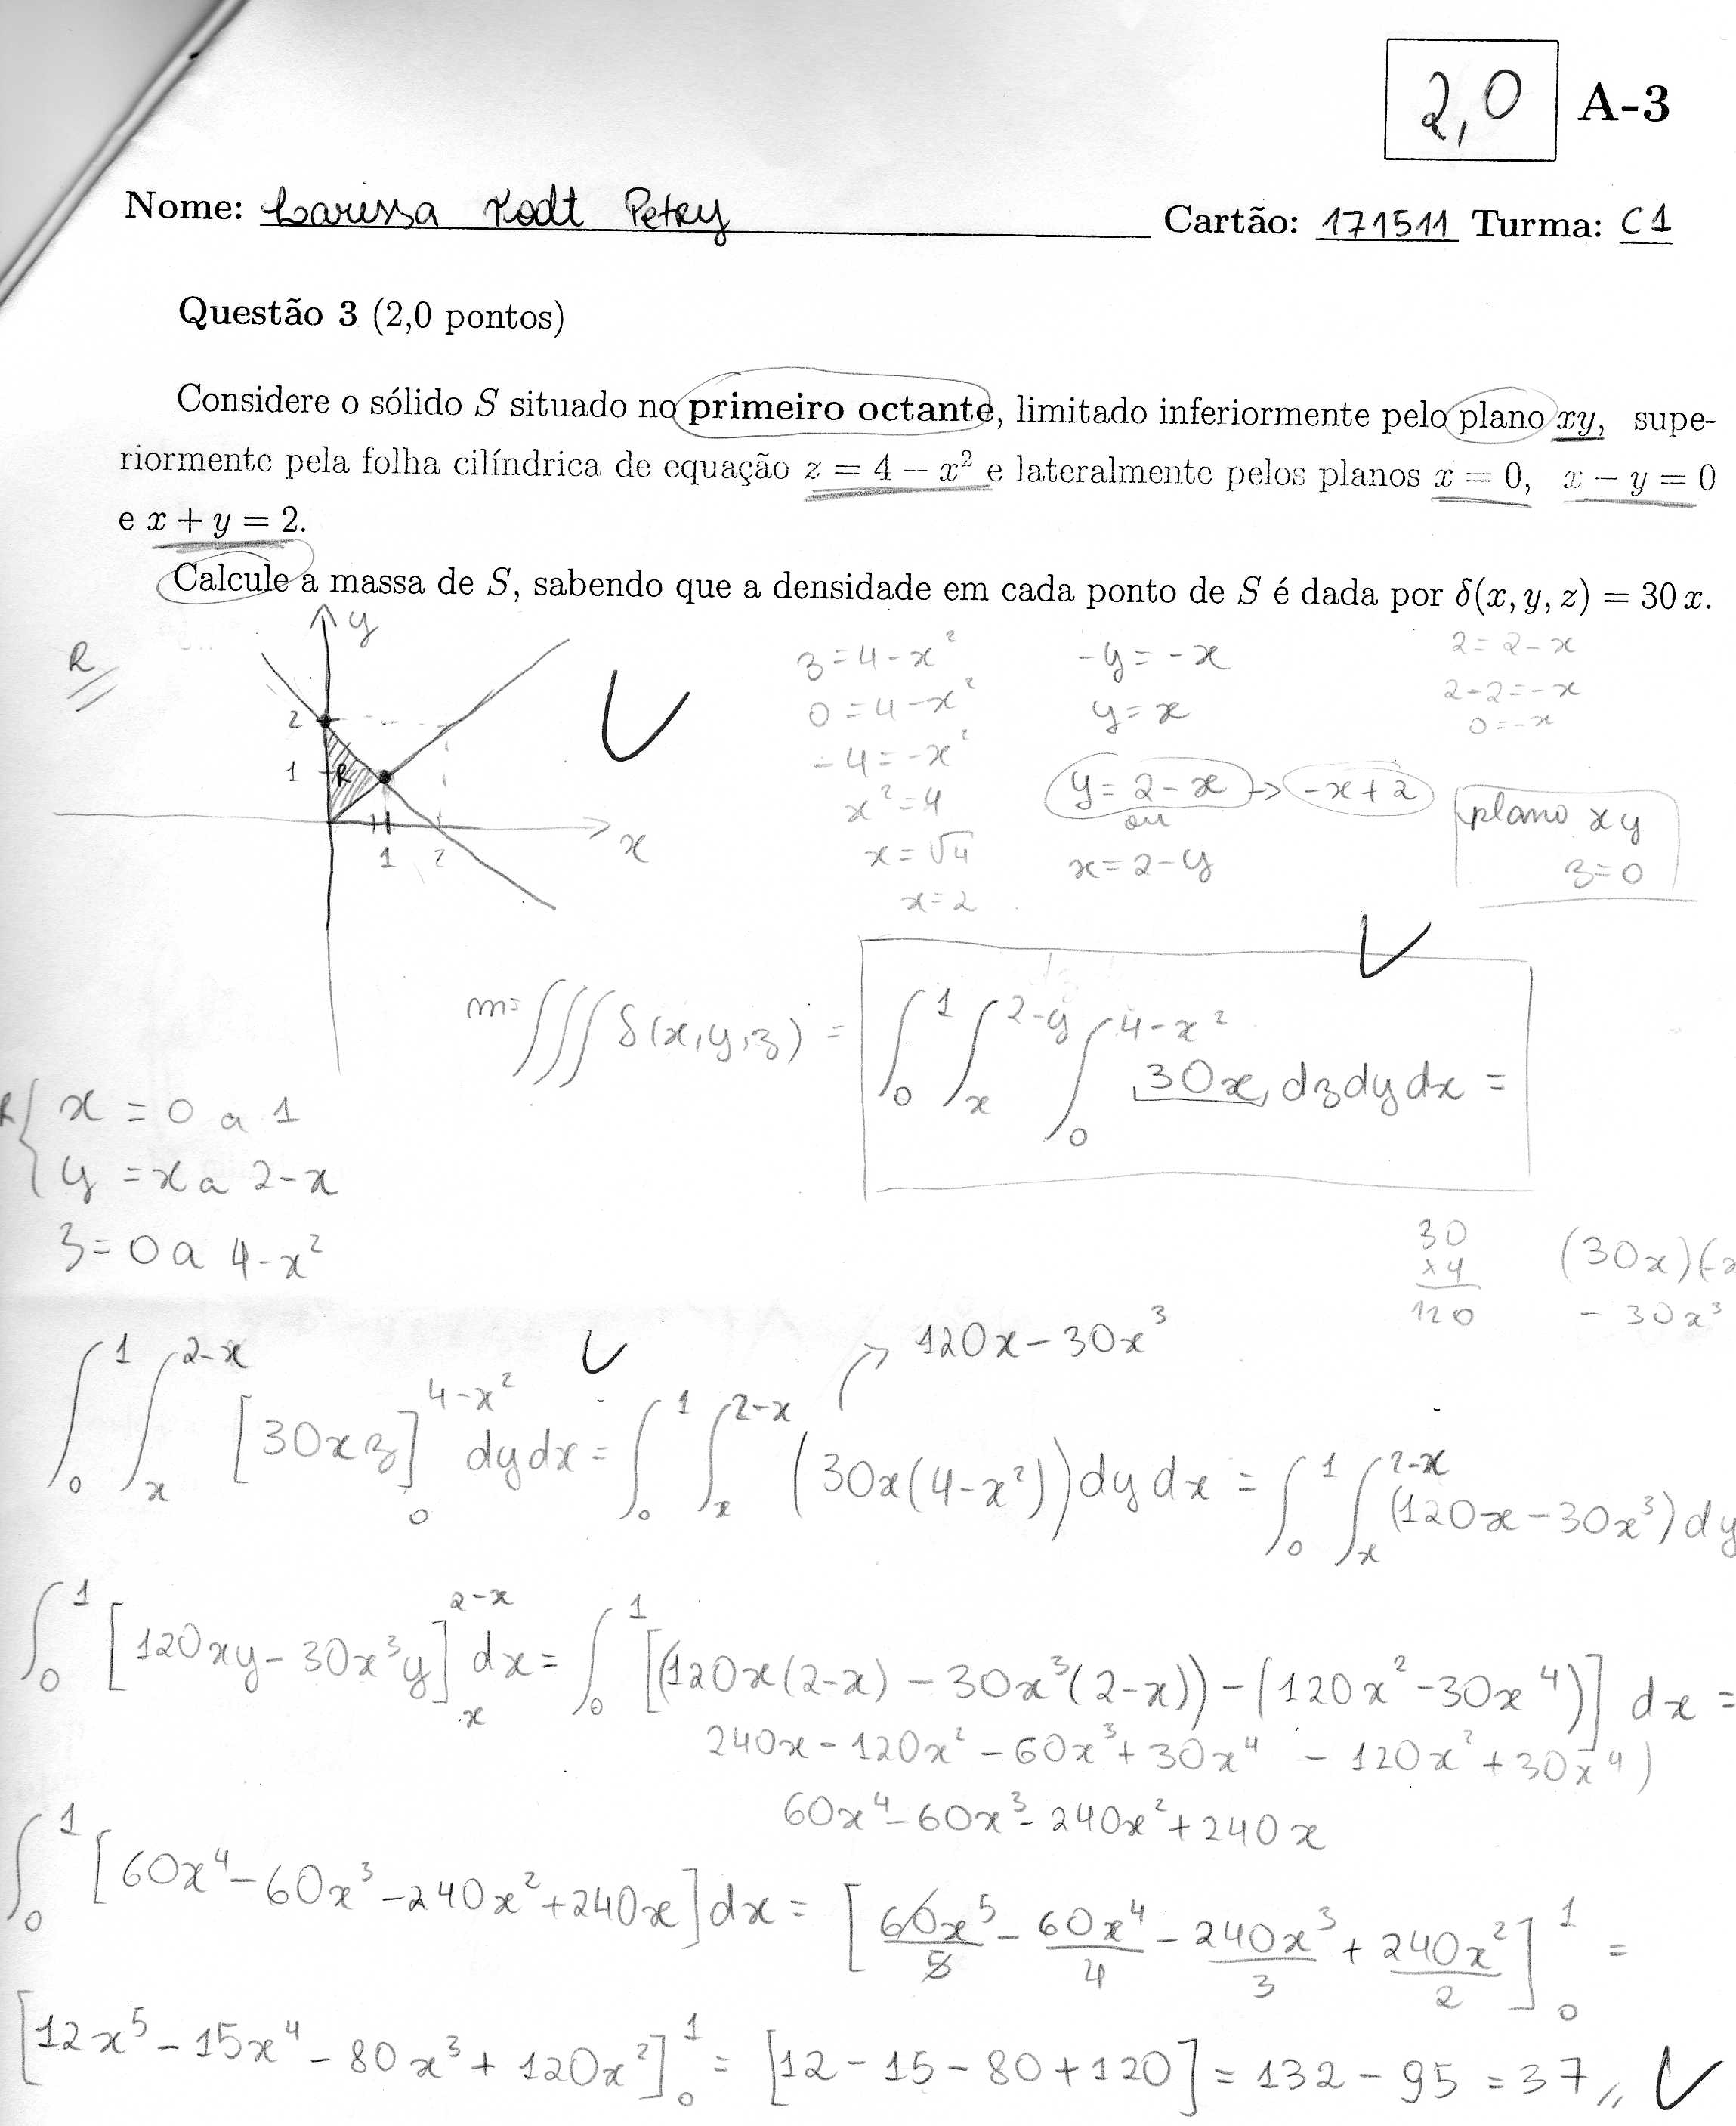 2,0 A-3
Nome: Larissa Kodt Petry Cartão: 171511 Turma: C1
Questão 3 (2,0 pontos)
Considere o sólido S situado no primeiro octante, limitado inferiormente pelo plano xy, supe-
riormente pela folha cilíndrica de equação z = 4 − x² e lateralmente pelos planos x = 0, x − y = 0
e x + y = 2.
Calcule a massa de S, sabendo que a densidade em cada ponto de S é dada por δ(x, y, z) = 30 x.
R
y
2
1
R
1 2
x
z = 4 - x²
0 = 4 - x²
-4 = -x²
x² = 4
x = √4
x = 2
-y = -x
y = x
y = 2 - x → -x + 2
ou
x = 2 - y
2 = 2 - x
2 - 2 = -x
0 = -x
plano xy
z = 0
m = ∫∫∫ δ(x, y, z) = ∫₀¹ ∫ₓ^(2-y) ∫₀^(4-x²) 30x dz dy dx =
R { x = 0 a 1
y = x a 2 - x
z = 0 a 4 - x²
30
x4
120
(30x)(-x
- 30x³
→ 120x - 30x³
∫₀¹ ∫ₓ^(2-x) [30xz]₀^(4-x²) dy dx = ∫₀¹ ∫ₓ^(2-x) (30x(4-x²)) dy dx = ∫₀¹ ∫ₓ^(2-x) (120x - 30x³) dy
∫₀¹ [120xy - 30x³y]ₓ^(2-x) dx = ∫₀¹ [(120x(2-x) - 30x³(2-x)) - (120x² - 30x⁴)] dx =
240x - 120x² - 60x³ + 30x⁴ - 120x² + 30x⁴)
60x⁴ - 60x³ - 240x² + 240x
∫₀¹ [60x⁴ - 60x³ - 240x² + 240x] dx = [60x⁵/5 - 60x⁴/4 - 240x³/3 + 240x²/2]₀¹ =
[12x⁵ - 15x⁴ - 80x³ + 120x²]₀¹ = [12 - 15 - 80 + 120] = 132 - 95 = 37 //